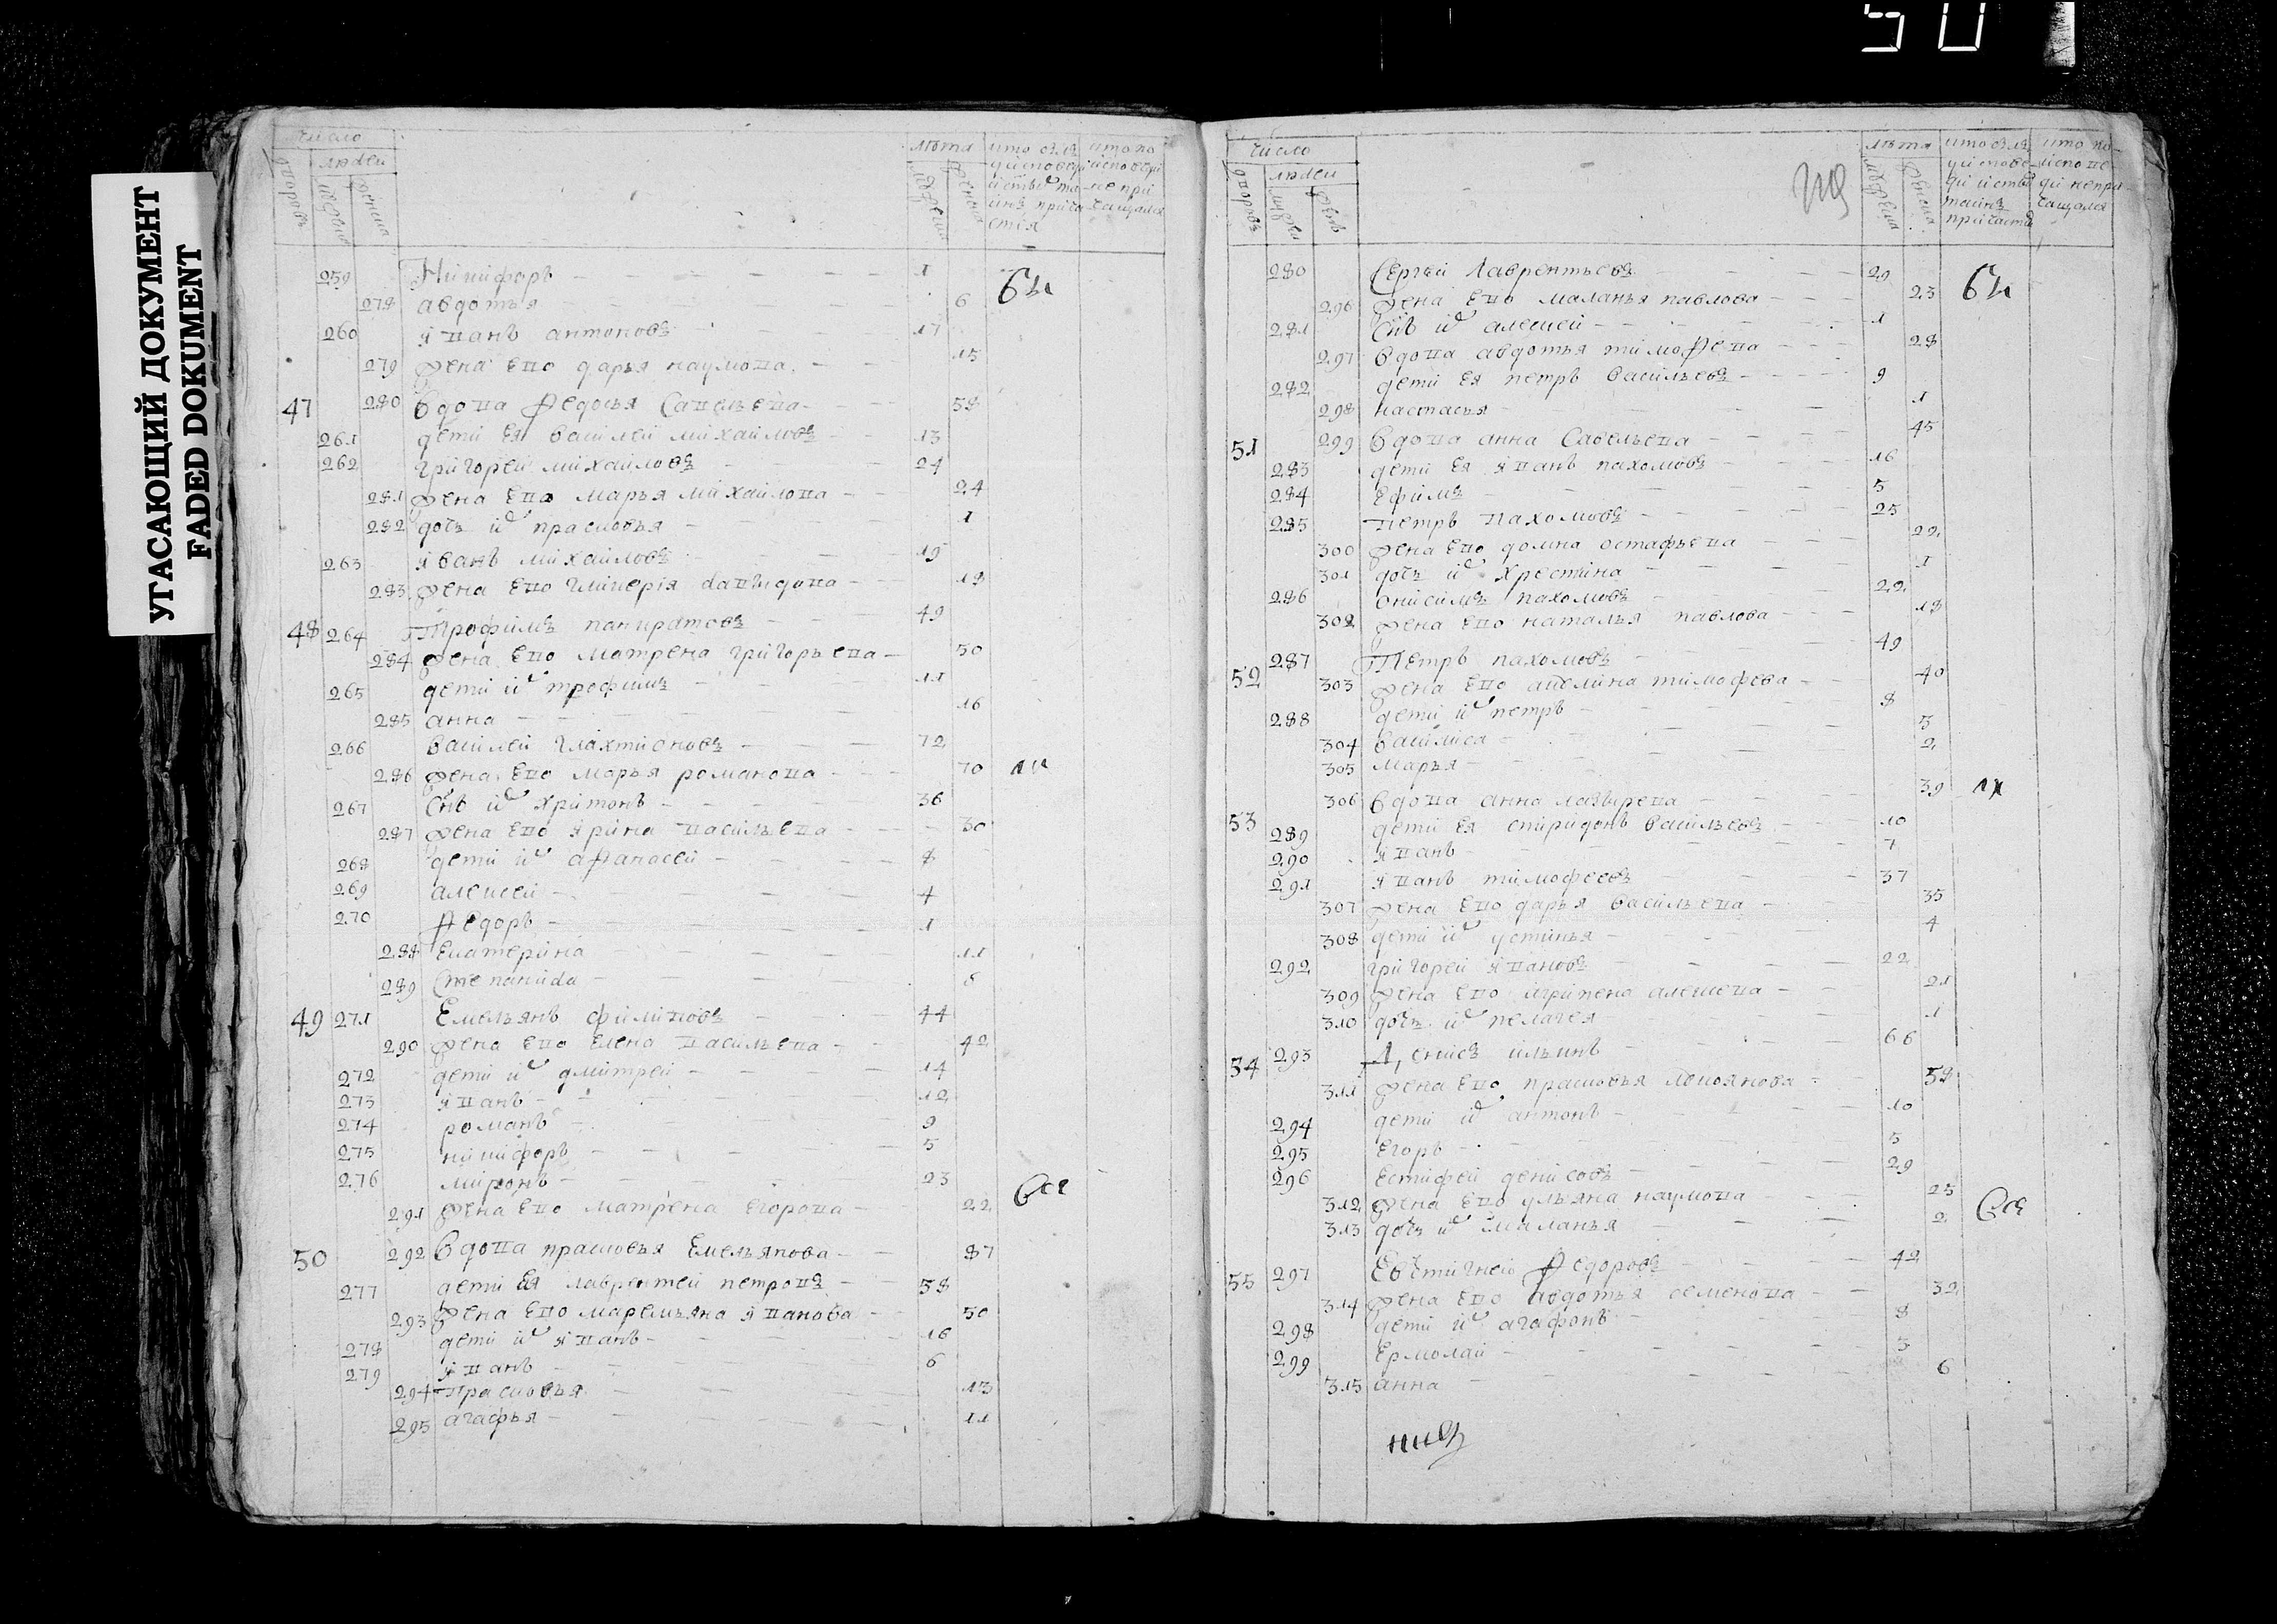 50
УГАСАЮЩИЙ ДОКУМЕНТ
FADED DOKUMENT
число
людеи
дворовъ
лѣта
259 Никифоръ 1
278 авдотья 6
260 Иванъ антоновъ 17
279 жена ево дарья наумова 15
47 280 вдова Федосья Савельева 58
261 дети Ея василеи михаиловъ 13
262 григореи михаиловъ 24
281 жена ево марья михаилова 24
282 дочь ивд прасковья 1
263 Иванъ михаиловъ 19
283 жена ево давыдова 19
48 264 Трофимъ панкратовъ 49
284 жена ево матрена григорьева 50
265 дети ив трофимъ 11
285 анна 16
266 василеи 72
286 жена ево марья романова 70
267 Снъ ив харитонъ 36
287 жена ево Ирина васильева 30
268 дети ив афанасеи 8
269 алексеи 4
270 Федоръ 1
288 Екатерина 11
289 Степанида 6
49 271 Емельянъ филиповъ 44
290 жена ево Елена васильева 42
272 дети ив дмитреи 14
273 Иванъ 12
274 романъ 9
275 никифоръ 5
276 миронъ 23
291 жена ево матрена Егорова 22
50 292 вдова прасковья Емельянова 87
277 дети Ея лаврентеи петровъ 58
293 жена ево маремьяна Иванова 50
278 дети ив Иванъ 16
279 Иванъ 6
294 Прасковья 13
295 агафья 11
число
людеи
дворовъ
лѣта
280 Сергеи Лаврентьевъ 29
296 жена ево маланья павлова 23
281 Снъ ив алексеи 1
297 вдова авдотья тимофева 28
282 дети Ея петръ васильевъ 9
298 настасья 1
51 299 вдова анна Савельева 45
283 дети Ея Иванъ пахомовъ 16
284 Ефимъ 5
285 петръ пахомовъ 25
300 жена ево домна остафьева 22
301 дочь ив хрестина 1
286 онисимъ пахомовъ 22
302 жена ево наталья павлова 18
52 287 Петръ пахомовъ 49
303 жена ево акелина тимофева 40
288 дети ив петръ 8
304 василиса 3
305 марья 2
53 306 вдова анна лазырева 39
289 дети Ея спиридонъ васильевъ 10
290 Иванъ 7
291 Иванъ тимофеевъ 37
307 жена ево дарья васильева 35
308 дети ив устинья 4
292 григореи Ивановъ 22
309 жена ево агрипена алексева 21
310 дочь ив пелагея 1
54 293 Денисъ ильинъ 66
311 жена ево прасковья лукоянова 58
294 дети ив антонъ 10
295 Егоръ 5
296 Естифеи денисовъ 29
312 жена ево ульяна наумова 25
313 дочь ив маланья 2
55 297 Евстигнеи Федоровъ 42
314 жена ево авдотья семенова 32
298 дети ив агафонъ 8
299 Ермолаи 3
315 анна 6